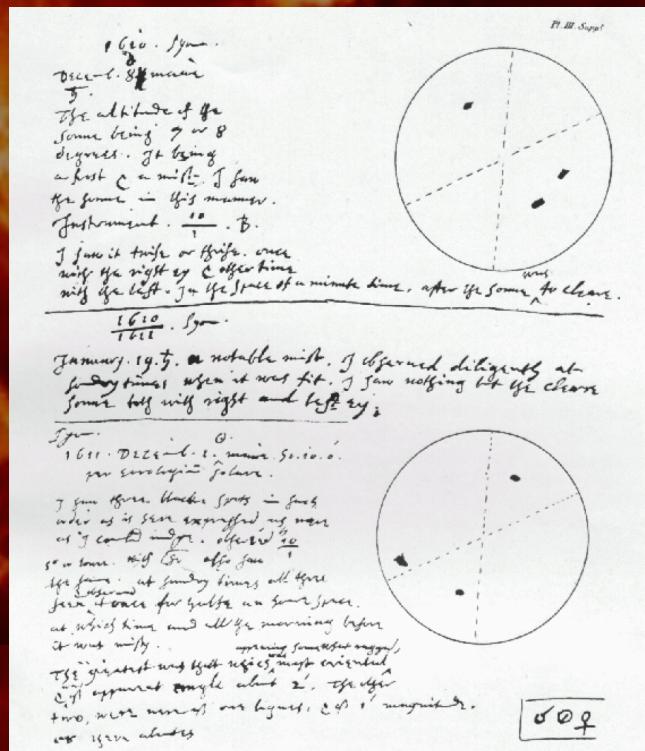 Pl. III. Suppl
1610. Syon.
Decemb. 8 mane
♄.
The altitude of the
sonne being 7 or 8
degrees. It being
a frost & a mist. I saw
the sonne in this manner.
Instrument. 10/1 . B.
I saw it twise or thrise. once
with the right ey & other time
with the left. In the space of a minute time, after the sonne was to cleare.
1610/1611 . Syon.
January. 19. ♄. a notable mist. I observed diligently at
sondry times when it was fit. I saw nothing but the cleare
sonne both with right and left ey.
Syon.
1611. Decemb. 1. ☉. mane. 10. 0.
per horologium Solare.
I saw three blacke spots in such
order as is here expressed as nere
as I could judge. observed 10/1
also saw
the same. at sundry times all three
seen at once for halfe an houre space.
at which time and all the morning before
it was misty.
appearing somewhat ragged,
The greatest was that which was most oriental
& of apparent angle about 2'. The other
two, were nere of one bignes, & of 1' magnitude.
or there abouts
♂☉♀